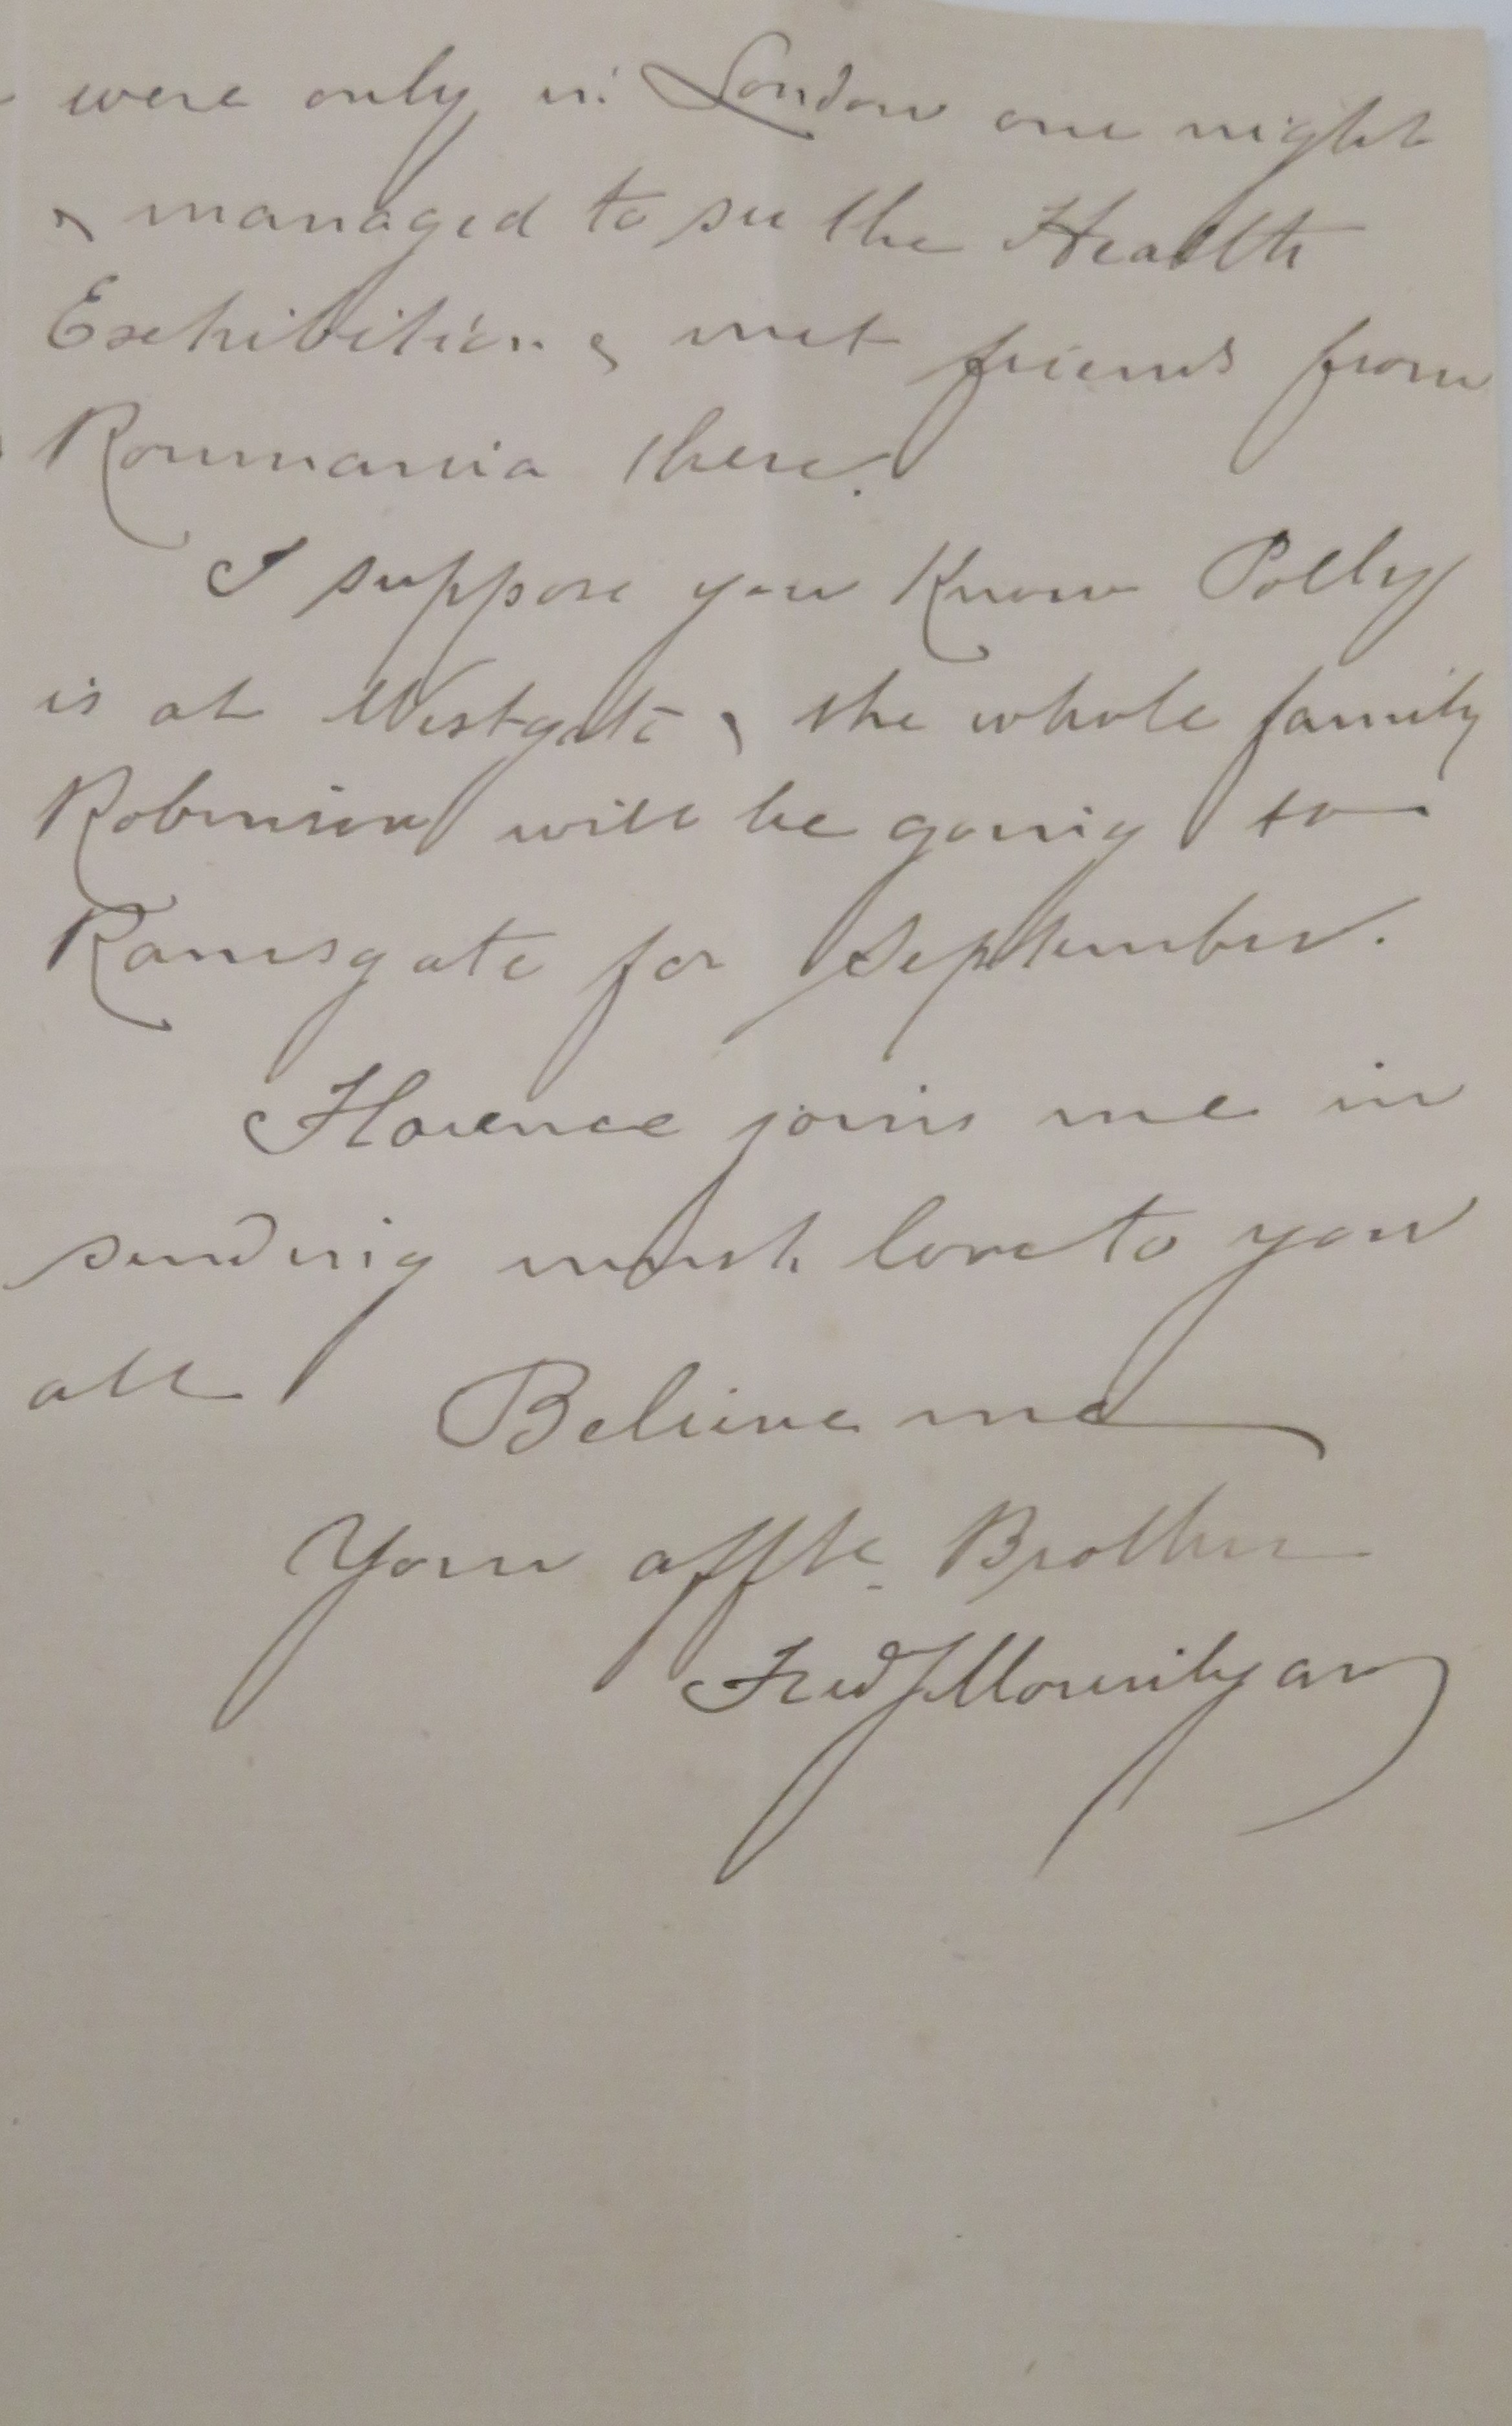 were only in London one night
& managed to see the Health
Exhibition & met friends from
Roumania there.
I suppose you know Polly
is at Westgate & the whole family
Robinson will be going to
Ramsgate for September.
Florence joins me in
sending much love to you
all Believe me
Your affte. Brother
Fred J Mounilyan